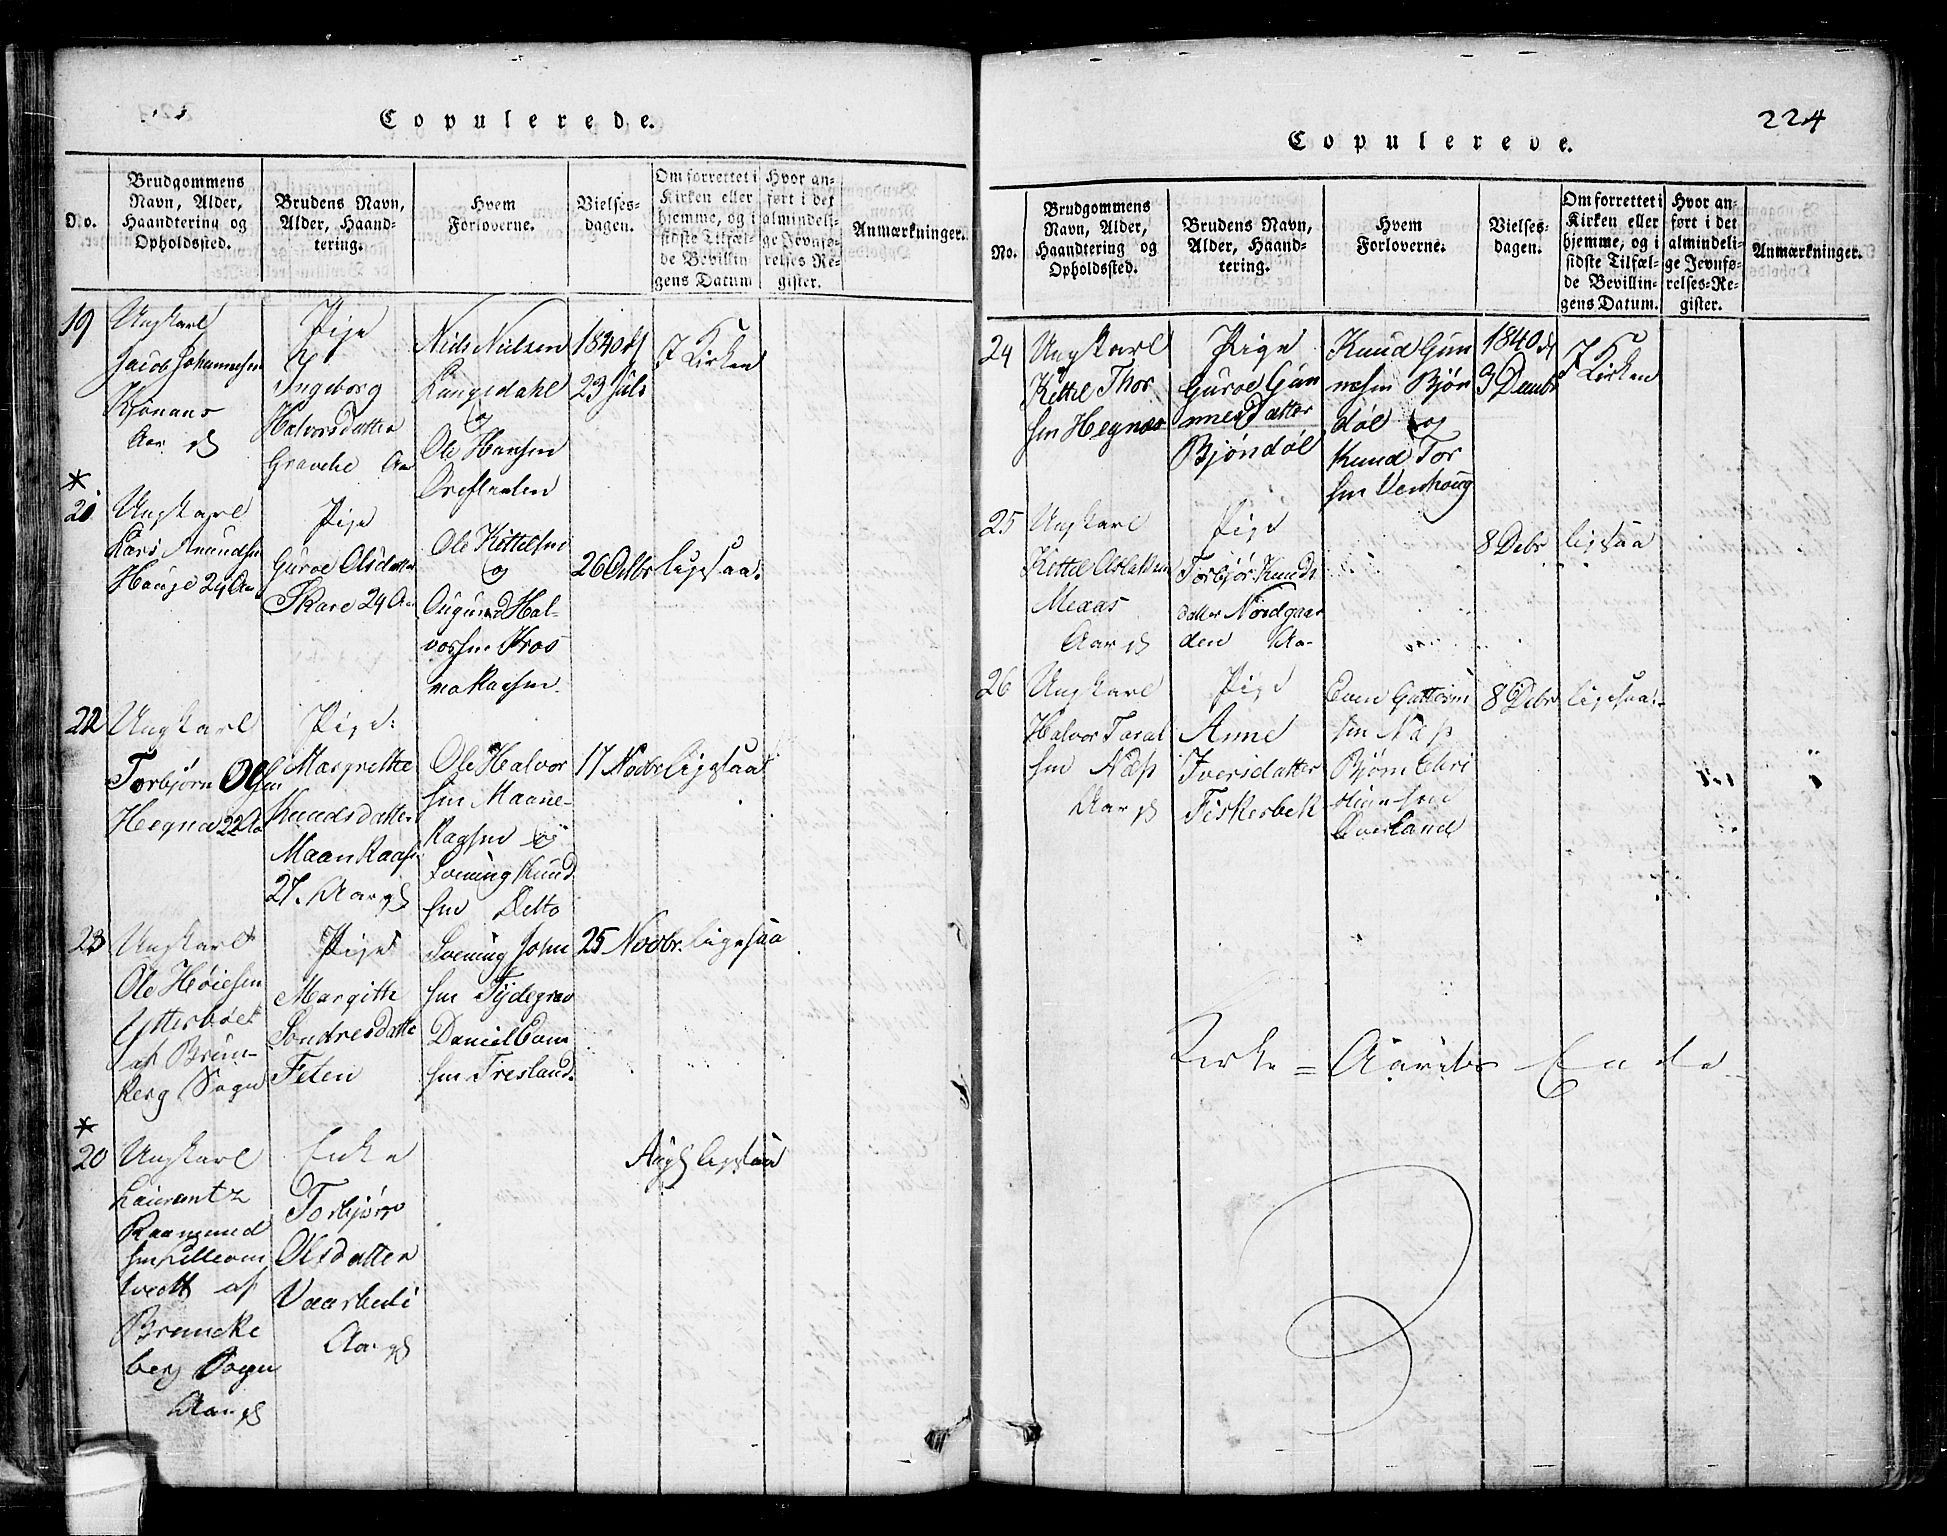 Copulerede.
No.
Brudgommens
Navn, Alder,
Haandtering og
Opholdssted.
Brudens Navn,
Alder, Haand-
tering.
Hvem
Forloverne.
Vielses-
dagen.
Om forrettet i
Kirken eller
hjemme, og i
sidste Tilfæl-
de Bevillin
gens Datum
Hvor an-
ført i det
almindeli-
ge Jevnfø-
relses-Re-
gister.
Anmærkninger.
19
Ungkarl
Jacob Johannesen
Aar
Pige
Ingeborg
Halvorsdatter
Gravelie Aar
Niels Nielsen
Langedahl
og
Ole Hansen
1840 d
23 Juli
I Kirken
*
21
Ungkarl
Lars Amundsen
Hauge 24 Aar
Pige
Guroe Olsdatter
Skare 24 Aar
Ole Kittelsen
og
Ougund Hal-
vorsen
26 Octbr
ligesaa.
22
Ungkarl
Torbjørn Olsen
Hegna 22 Aar
Pige:
Margrethe
Knudsdatter
Maanraas
27. Aar gl
Ole Halvor
sen Maane-
Raasen og
Svenung Knud
sen Ditto
17 Novbr
ligesaa
23
Ungkarl
Ole Høiesen
Ytterbøe
af Brun-
kerg Sogn
Pige
Margitte
Sondresdatte
Felen
Svenung John
sen Tydegrav
Daniel Even
sen Tresland.
25 Novbr.
ligesaa
*
20
Ungkarl
Laurantz
Raamund
sen Lilleom
tvedt af
Bruncke
berg Sogn
Aar gl
Enke
Torbjørg
Olsdatter
Vaarheli
Aar gl
ligesaa
224
Copulerede.
No.
Brudgommens
Navn, Alder,
Haandtering og
Opholdssted.
Brudens Navn,
Alder, Haand-
tering.
Hvem
Forloverne.
Vielses-
dagen.
Om forrettet i
Kirken eller
hjemme, og i
sidste Tilfæl-
de Bevillin-
gens Datum.
Hvor an-
ført i det
almindeli-
ge Jevnfø-
relses-Re-
gister.
Anmærkninger.
24
Ungkarl
Kittel Thor
sen Hegnar
Pige
Guroe Gun
nersdatter
Bjøndøl
Knud Gun
nersen Bjøn
døl og
Knud Tor
sen Venhoug
1840 d
3 Decmb
I Kirken
25
Ungkarl
Kittel Aslaksen
Mexas
Aar gl
Pige
Torbjør Knuds
datter Nordgaar
den Aa-
8 Debr
ligesaa
26
Ungkarl
Halvor Taral
sen Næs
Aar gl
Pige
Anne
Iversdatter
Fiskerbek
Even Guttorm
sen Næs
Bjørn Chri
stiansen
Overland
8 Debr
ligesaa.
Kirke = Aarets Ende